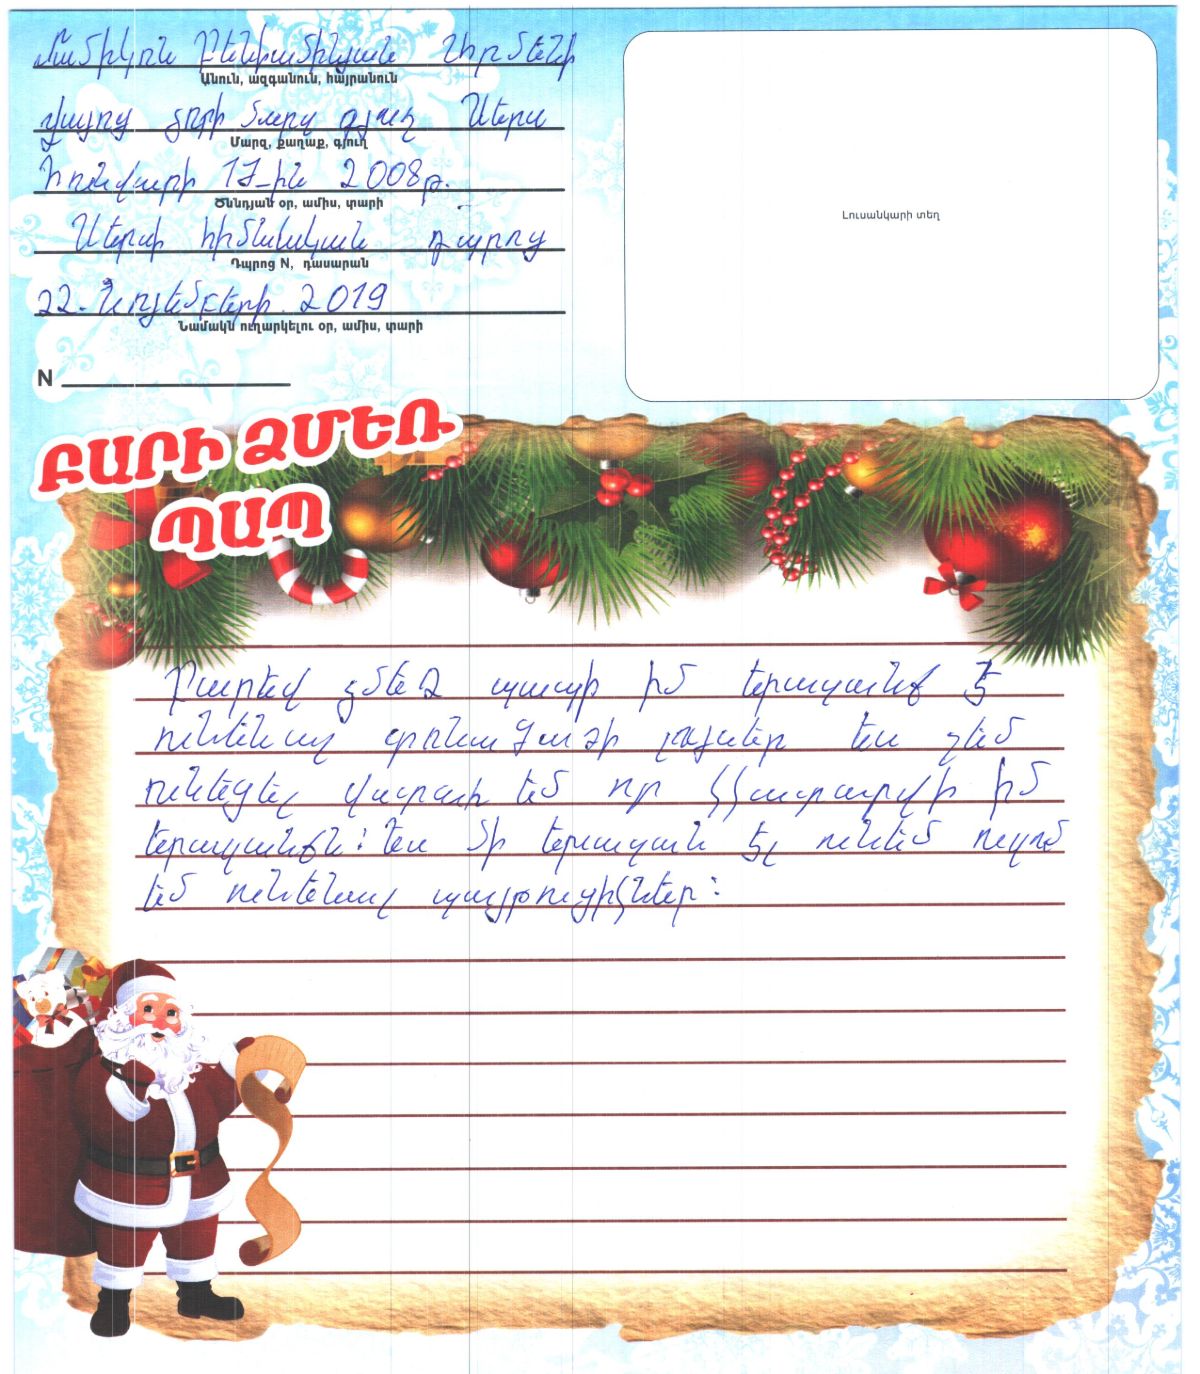 Մամիկոն Բենիամինյան Արմենի
Անուն, ազգանուն, հայրանուն
Վայոց ձորի մարզ գյուղ Աերս
Մարզ, քաղաք, գյուղ
Հունվարի 17-ին 2008թ.
Ծննդյան օր, ամիս, տարի
հիմնական դպրոց
Դպրոց N, դասարան
22. Նոյեմբերի. 2019
Նամակն ուղարկելու օր, ամիս, տարի
Լուսանկարի տեղ
N
ԲԱՐԻ ՁՄԵՌ
ՊԱՊ
Բարեվ ձմեռ պապի իմ երազանքը է
ունենալ ես չեմ
ունեցել վստահ եմ որ կկատարվի իմ
երազանքն: Ես մի երազանք էլ ունեմ ուզում
եմ ունենալ պայթուցիկներ: